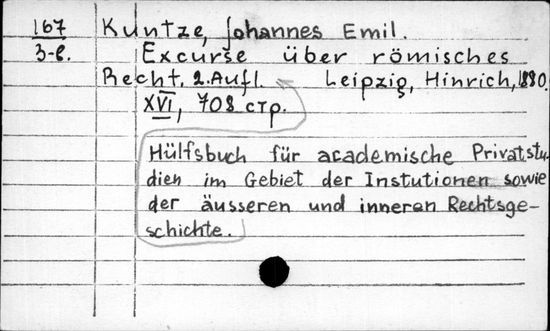 167 Kuntze, Johannes Emil.
3-е. Excurse über römisches
Recht. 2. Aufl. Leipzig, Hinrich, 1880.
XVI, 708 стр.
Hülfsbuch für academische Privatstu-
dien im Gebiet der Instutionen sowie
der äusseren und inneren Rechtsge-
schichte.